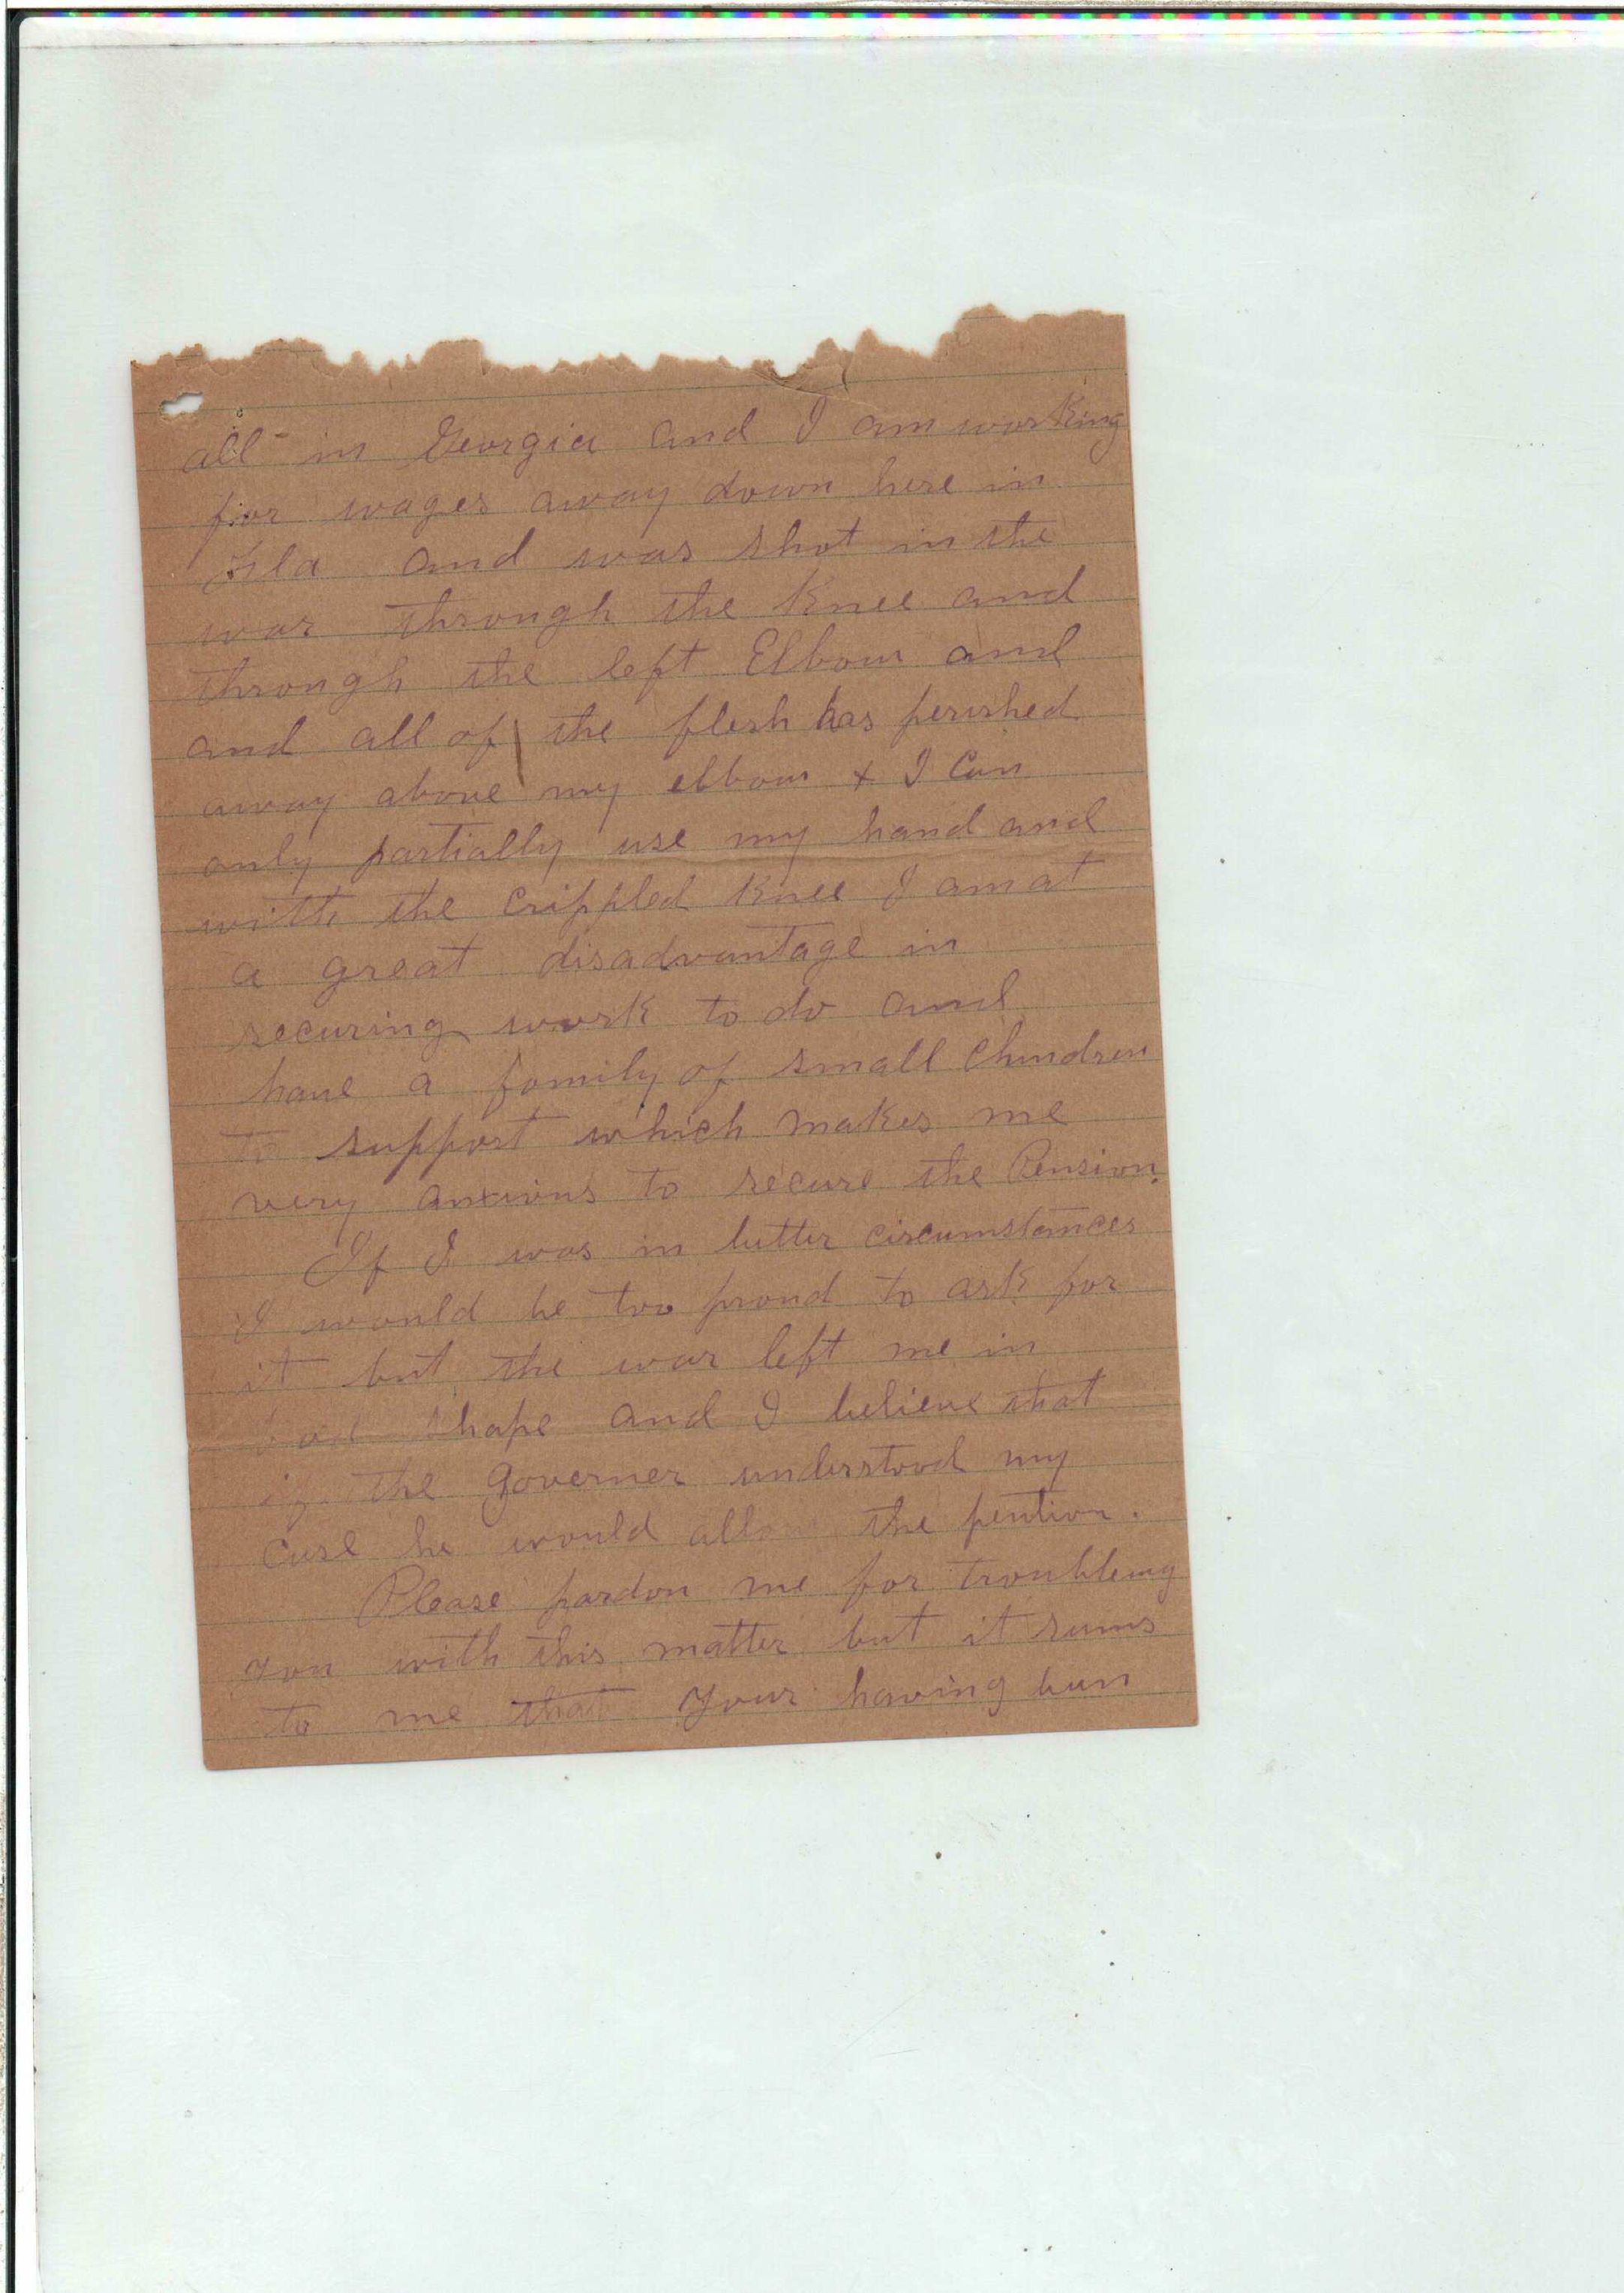 all in Georgia and I am working
for wages away down here in
Fla and was shot in the
war through the Knee and
through the left Elbow and
and all of the flesh has perished
away above my elbow + I Can
only partially use my hand and
with the Crippled Knee I am at
a great disadvantage in
securing work to do and
have a family of small Chindren
to support which makes me
very anxious to secure the Pension.
If I was in better circumstances
I would be too proud to ask for
it but the war left me in
bad shape and I believe that
if the Governer understood my
Case he would allow the pention.
Please pardon me for troubleing
you with this matter but it seems
to me that Your having been